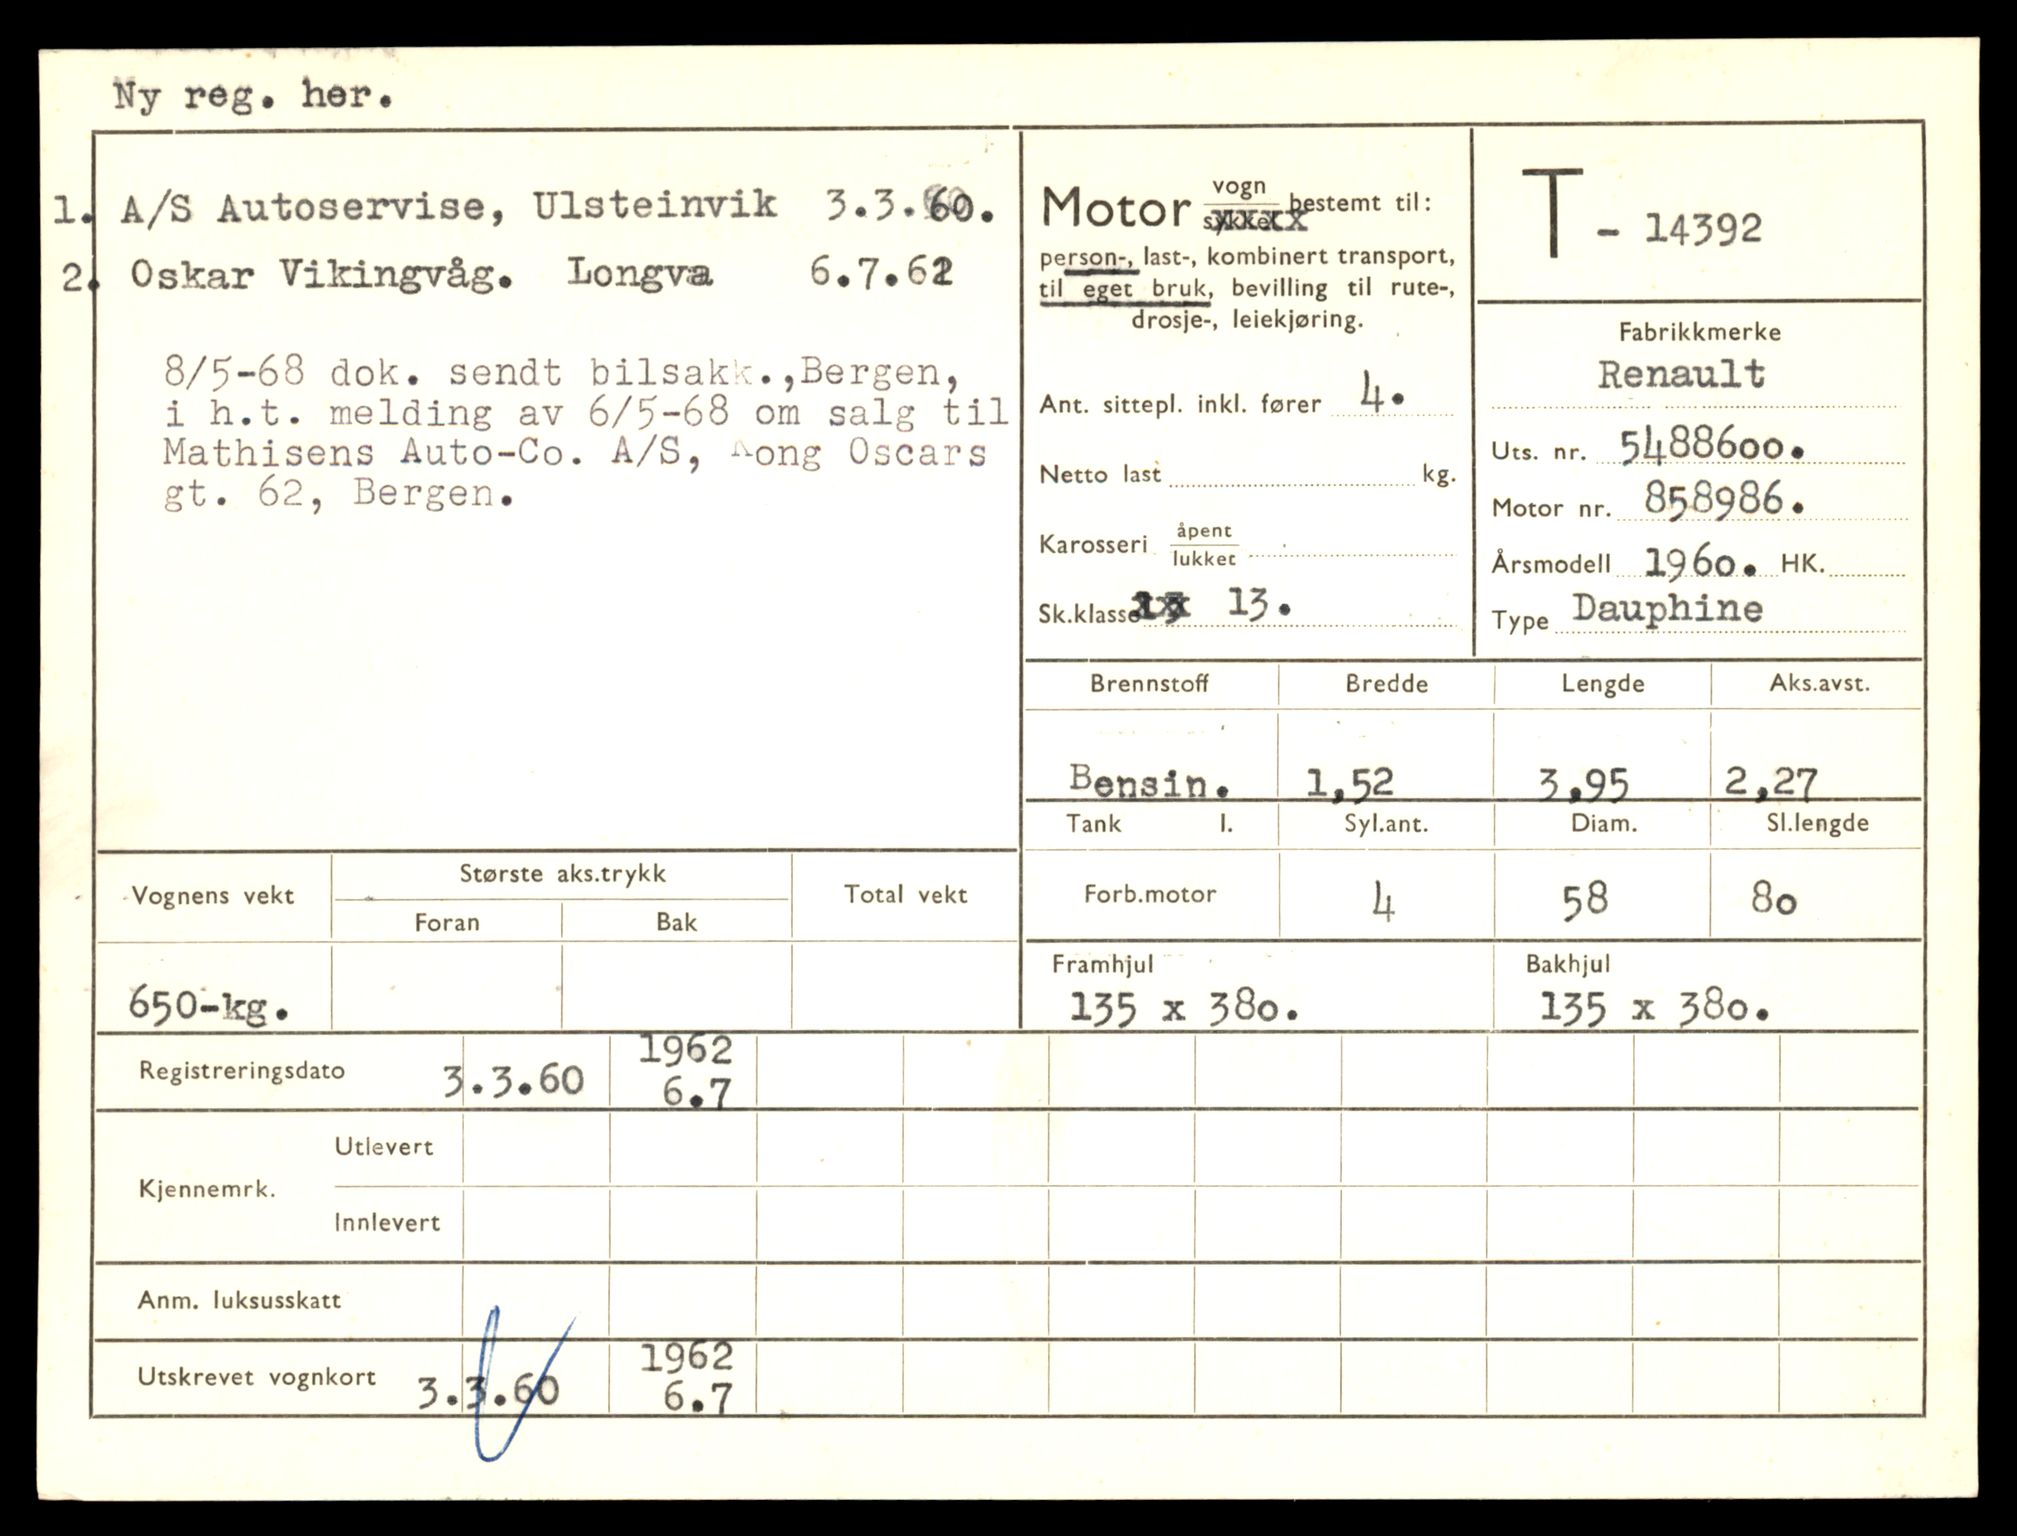 Ny reg. her.
1. A/S Autoservise, Ulsteinvik 3.3.60.
2. Oskar Vikingvåg. Longva 6.7.62
8/5-68 dok. sendt bilsakk.,Bergen,
i h.t. melding av 6/5-68 om salg til
Mathisens Auto-Co. A/S, Kong Oscars
gt. 62, Bergen.
Motor vogn bestemt til:
sykkel
person-, last-, kombinert transport,
til eget bruk, bevilling til rute-,
drosje-, leiekjøring.
Ant. sittepl. inkl. fører 4.
Netto last kg.
Karosseri åpent
lukket
Sk.klasse 13.
T - 14392
Fabrikkmerke
Renault
Uts. nr. 5488600.
Motor nr. 858986.
Årsmodell 1960. HK.
Type Dauphine
Brennstoff Bredde Lengde Aks.avst.
Bensin. 1,52 3,95 2,27
Tank l. Syl.ant. Diam. Sl.lengde
Forb.motor 4 58 80
Framhjul Bakhjul
135 x 380. 135 x 380.
Vognens vekt Største aks.trykk Total vekt
Foran Bak
650-kg.
Registreringsdato 3.3.60 1962
6.7
Kjennemrk. Utlevert
Innlevert
Anm. luksusskatt
Utskrevet vognkort 3.3.60 1962
6.7